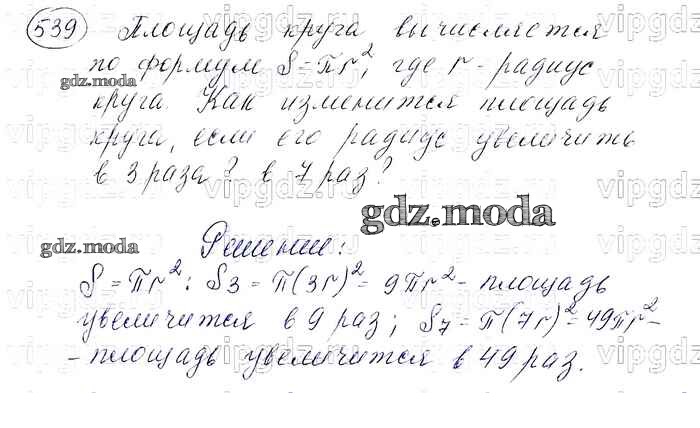 539 Площадь круга вычисляется
по формуле S = πr², где r - радиус
gdz.moda
круга. Как изменится площадь
круга, если его радиус увеличить
в 3 раза? в 7 раз?
gdz.moda
Решение:
gdz.moda
S = πr²: S₃ = π(3r)² = 9πr² - площадь
увеличится в 9 раз; S₇ = π(7r)² = 49πr² -
- площадь увеличится в 49 раз.